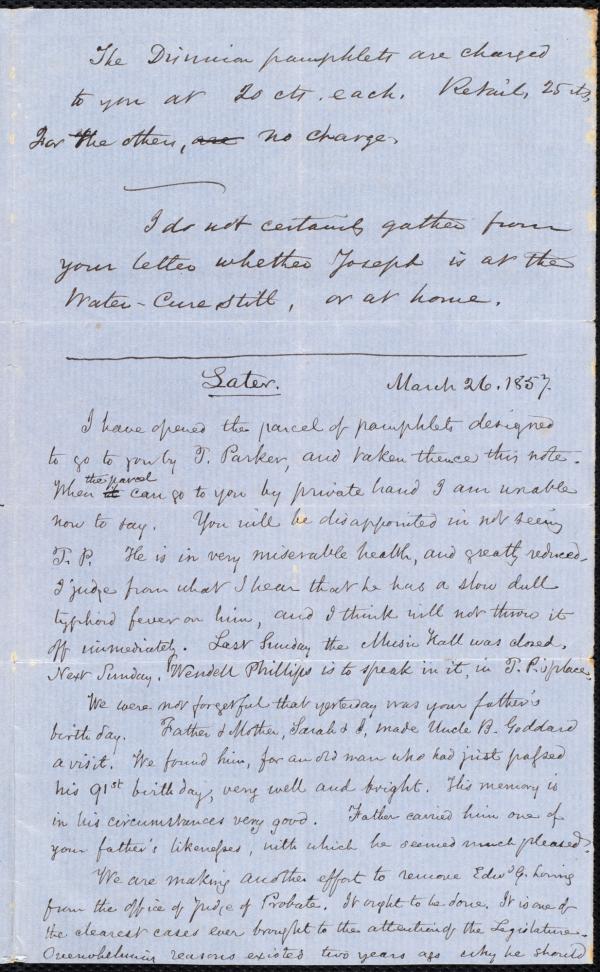 The Disunion pamphlets are charged
to you at 20 cts. each. Retail, 25 cts.
For the others, are no charge.
I do not certainly gather from
your letter whether Joseph is at the
Water-Cure still, or at home.
Later. March 26. 1857.
I have opened the parcel of pamphlets designed
to go to you by T. Parker, and taken thence this note.
When it the parcel can go to you by private hand I am unable
now to say. You will be disappointed in not seeing
T. P. He is in very miserable health, and greatly reduced.
I judge from what I hear that he has a slow dull
typhoid fever on him, and I think will not throw it
off immediately. Last Sunday the Music Hall was closed.
Next Sunday, Wendell Phillips is to speak in it, in T. P.'s place.
We were not forgetful that yesterday was your father's
birthday. Father & Mother, Sarah & I, made Uncle B. Goddard
a visit. We found him, for an old man who had just passed
his 91st birthday, very well and bright. His memory is
in his circumstances very good. Father carried him one of
your father's likenesses, with which he seemed much pleased.
We are making another effort to remove Edwd G. Loring
from the office of Judge of Probate. It ought to be done. It is one of
the clearest cases ever brought to the attention of the Legislature.
Overwhelming reasons existed two years ago why he should